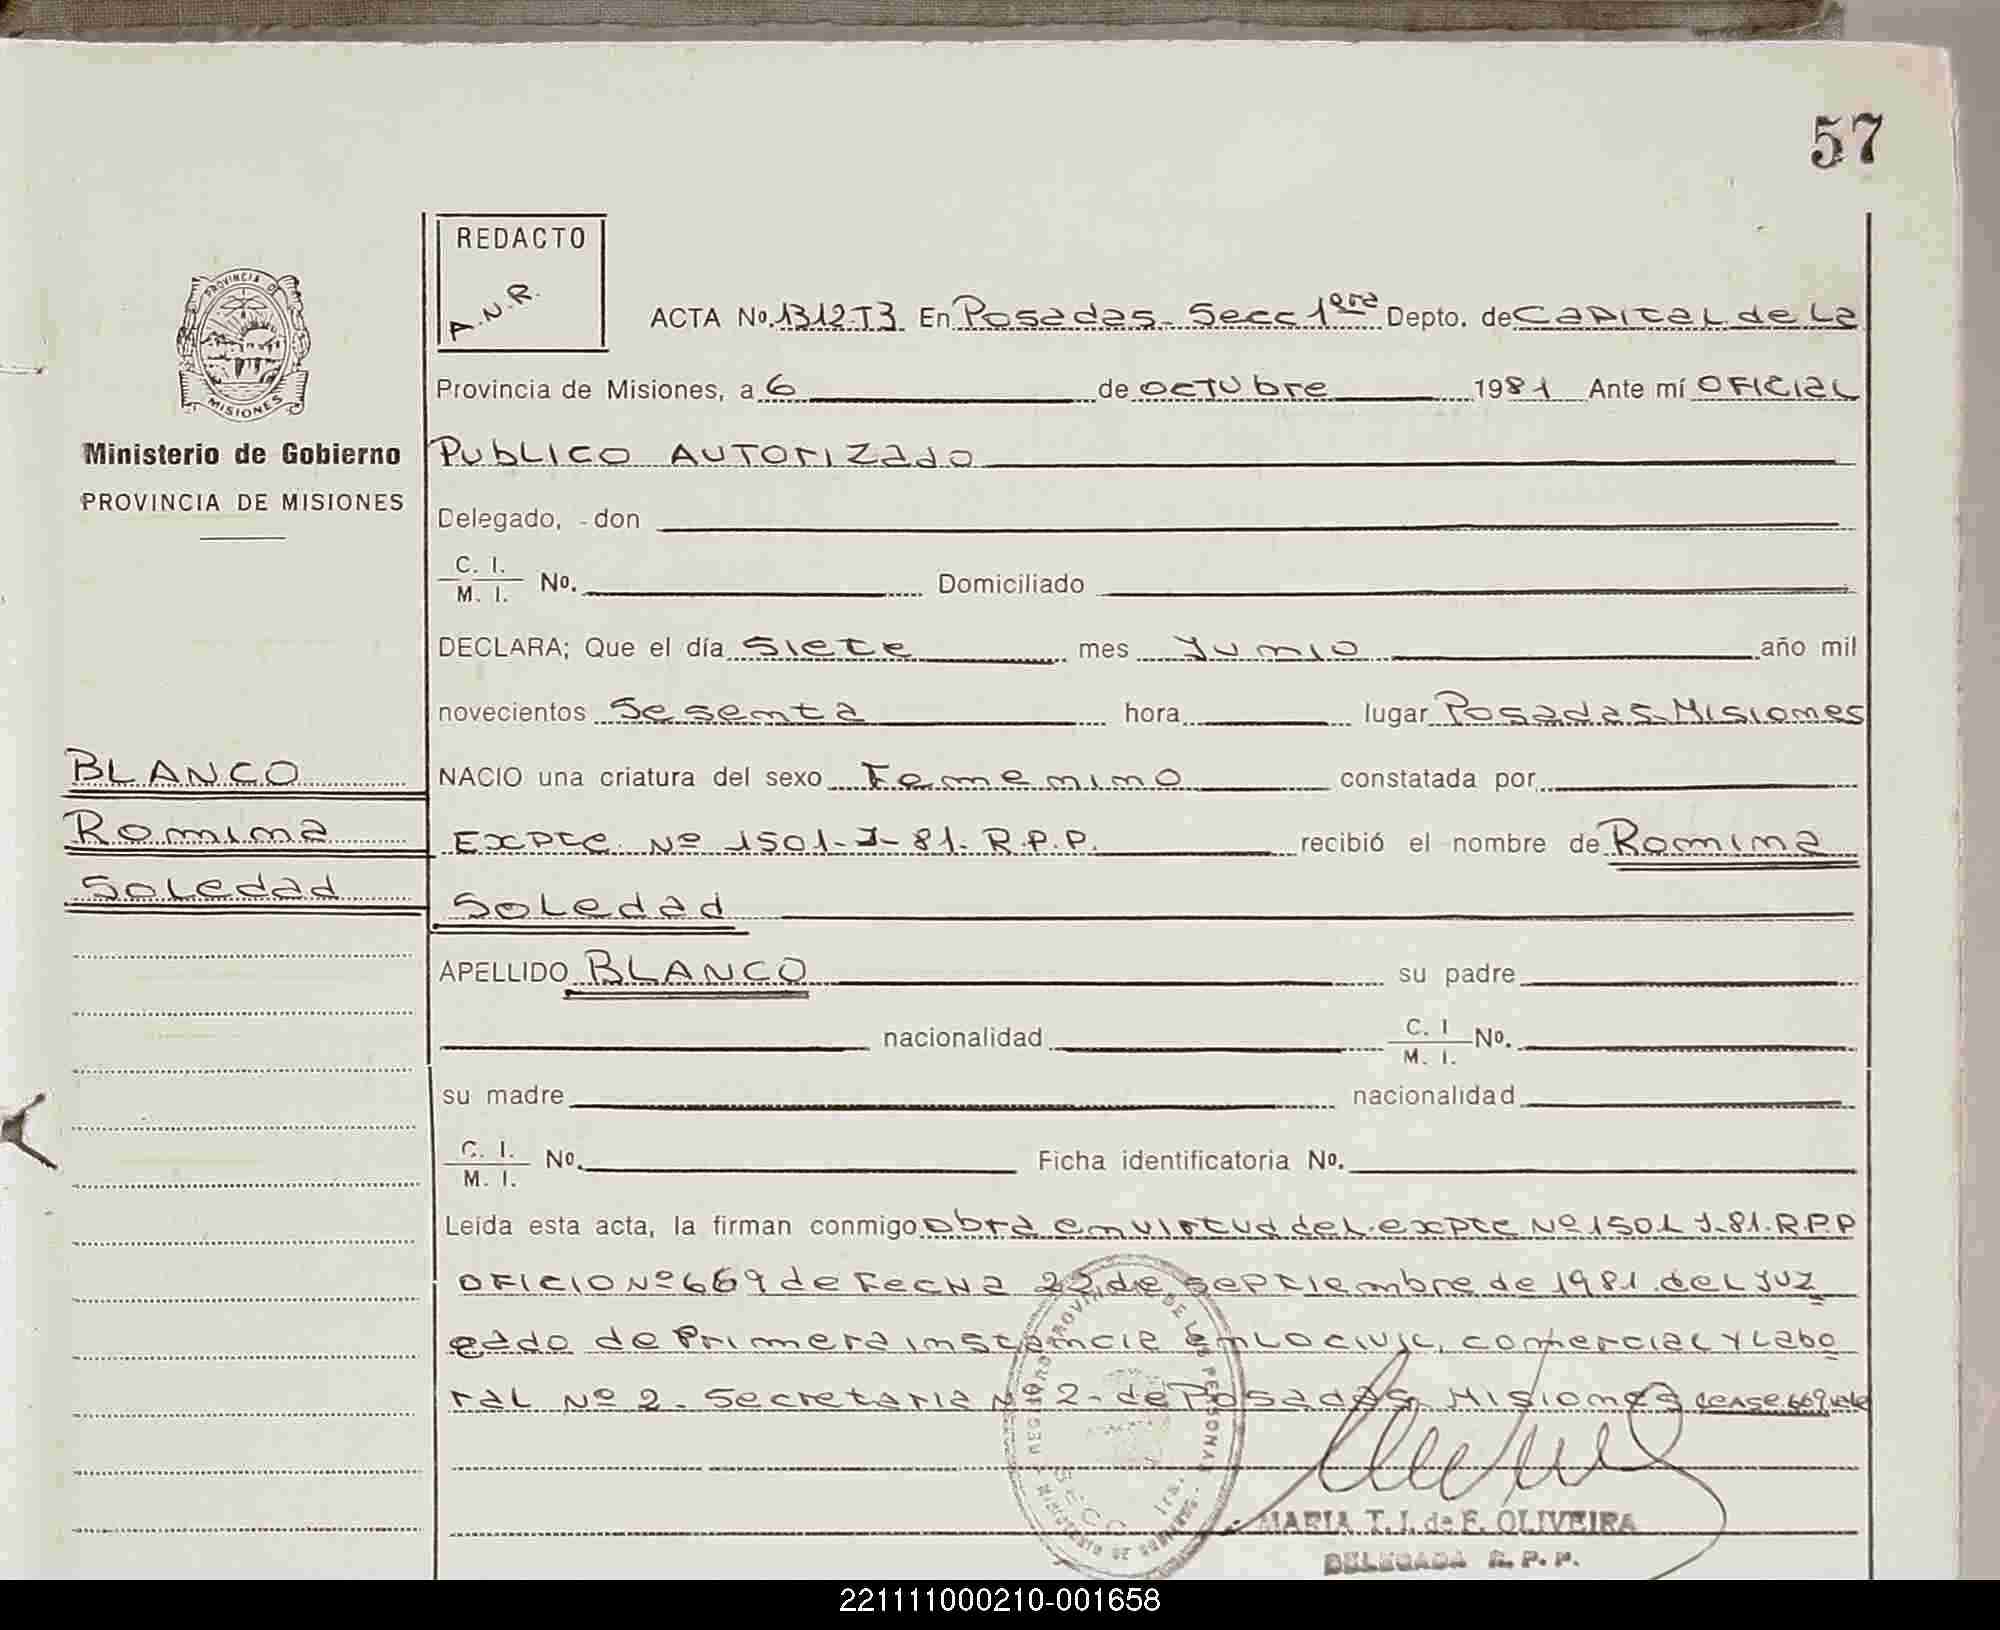 57
REDACTO
A.N.R.
PROVINCIA DE
MISIONES
Ministerio de Gobierno
PROVINCIA DE MISIONES
ACTA No. 1312 T3 En Posadas - Secc 1era Depto. de Capital de La
Provincia de Misiones, a 6 de octubre 1981 Ante mí OFICIAL
Publico AUTorizado
Delegado, - don
C. I.
M. I. No. Domiciliado
DECLARA; Que el día siete mes Junio año mil
novecientos Sesenta hora lugar Posadas Misiones
BLANCO
NACIO una criatura del sexo Femenino constatada por
Romina
Expte Nº 1501-J-81-R.P.P. recibió el nombre de Romina
Soledad
Soledad
APELLIDO BLANCO su padre
nacionalidad C. I
M. I. No.
su madre nacionalidad
C. I.
M. I. No. Ficha identificatoria No.
Leída esta acta, la firman conmigo obra en virtud del expte Nº 1501 J-81. R.P.P
OFICIO Nº 669 de Fecha 22 de septiembre de 1981. del Juz
gado de Primera instancia en Lo civil, comercial y Labo
ral Nº 2 - Secretaria Nº 2 - de Posadas, Misiones 669 vale
MARIA T. I. de F. OLIVEIRA
DELEGADA R. P. P.
221111000210-001658